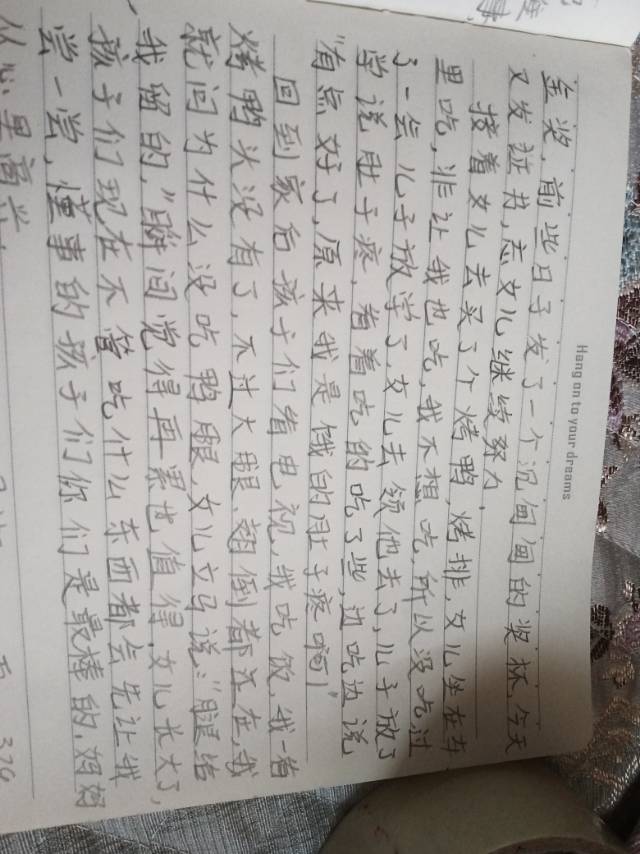 Hang on to your dreams
金奖,前些日子发了一个沉甸甸的奖杯,今天
又发证书,志女儿继续努力,
接着女儿去买了个烤鸭,烤排,女儿坐在车
里吃,非让我也吃,我不想吃,所以没吃,过
了一会儿子放学了,女儿去领他去了,儿子放了
学说肚子疼,看着吃的吃了些,边吃边说
"有点好了,原来我是饿的肚子疼啊!"
回到家后孩子们看电视,我吃饭,我一看
烤鸭头没有了,不过大腿、翅倒都还在,我
就问为什么没吃鸭腿,女儿立马说:"腿给
我留的,"瞬间觉得再累也值得,女儿长大了,
孩子们现在不管吃什么东西都会先让我
尝一尝,懂事的孩子们你们是最棒的,妈妈
从心里高兴,
326